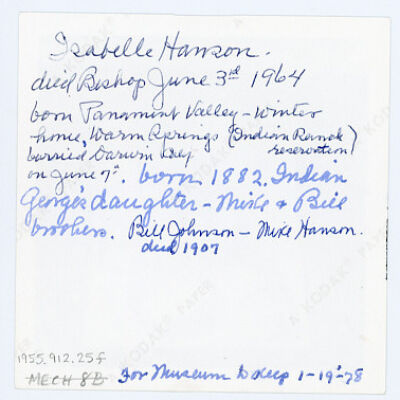 Isabelle Hanson.
died Bishop June 3rd 1964
born Panamint Valley - Winter
home, Warm Springs (Indian Ranch
reservation)
burried Darwin Cey
on June 7th. born 1882. Indian
George's daughter - Mike & Bill
brothers. Bill Johnson - Mike Hanson.
died 1907
1955.912.25f
MECH 8B
For Museum to keep 1-19-78
A KODAK PAPER